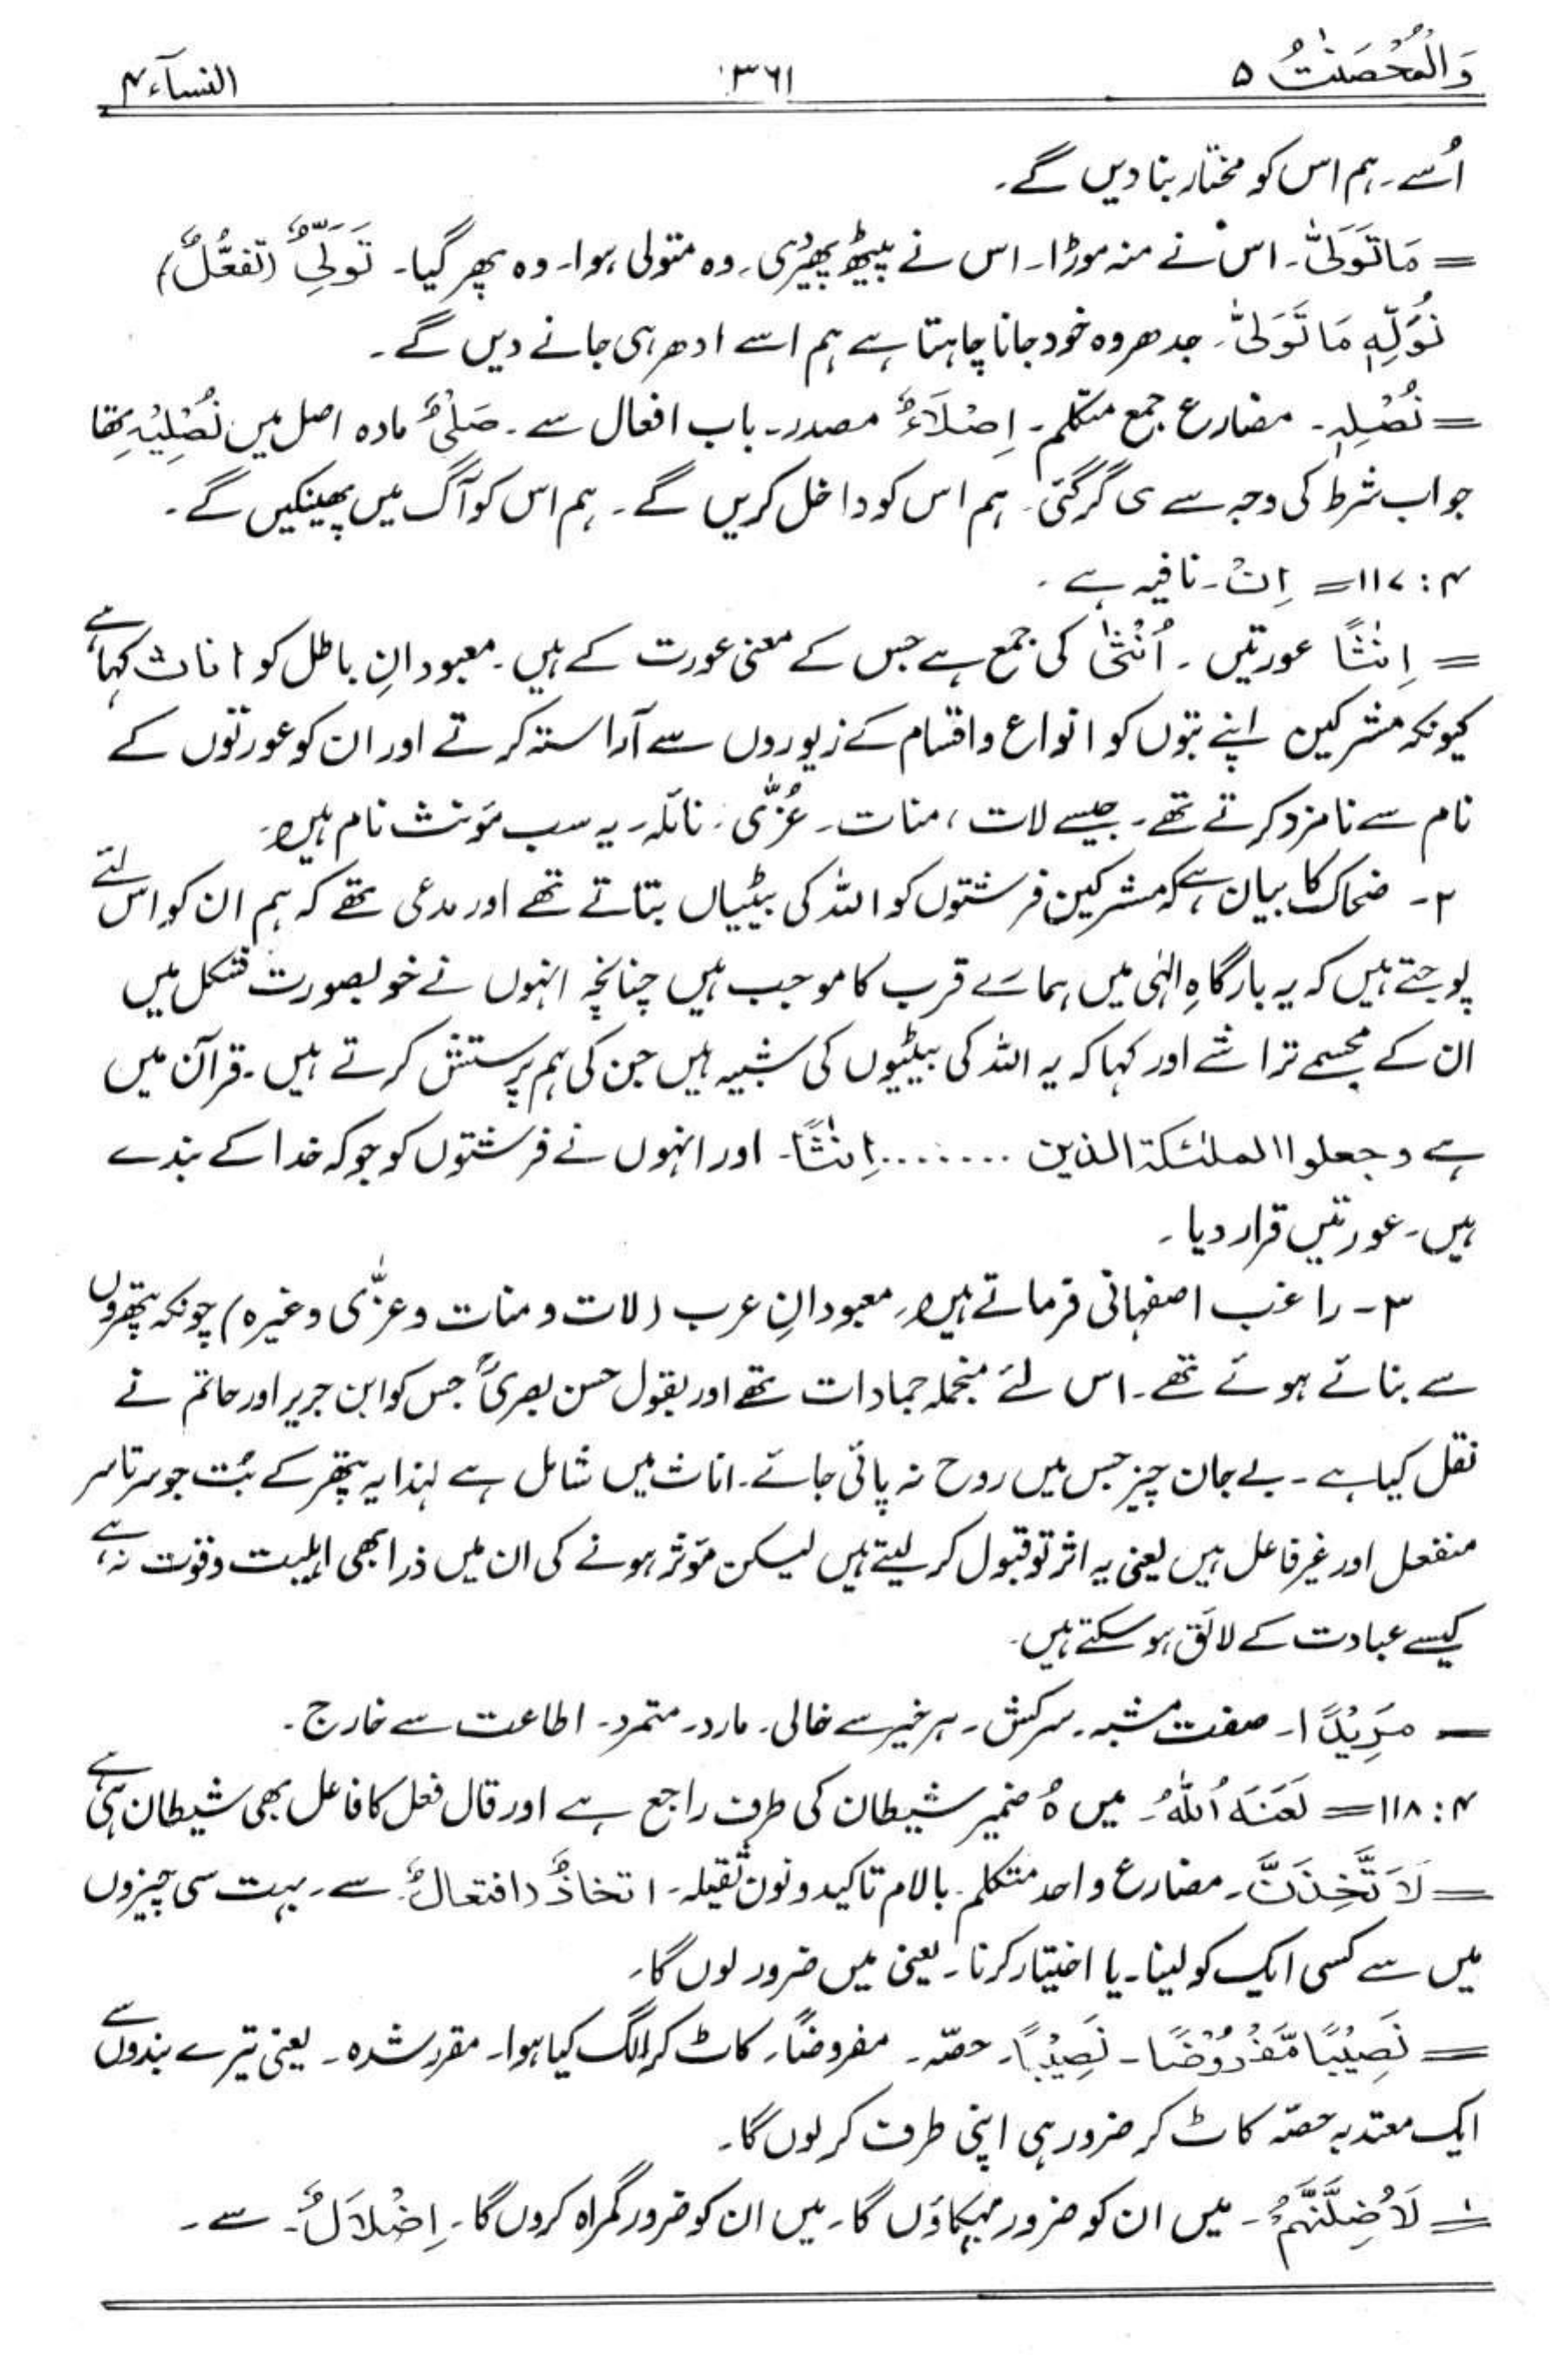 وَالْمُحْصَنٰتُ ۵
۳۶۱
النسآء ۴
اُسے۔ ہم اس کو مختار بنا دیں گے۔
= مَا تَوَلّٰی۔ اس نے منہ موڑا۔ اس نے پیٹھ پھیری۔ وہ متولی ہوا۔ وہ پھر گیا۔ تَوَلِّیٌ (تَفَعُّلٌ)
نُوَلِّہٖ مَا تَوَلّٰی۔ جدھر وہ خود جانا چاہتا ہے ہم اسے ادھر ہی جانے دیں گے۔
= نُصْلِہٖ۔ مضارع جمع متکلم۔ اِصْلَاءٌ مصدر۔ باب افعال سے۔ صَلْیٌ مادہ اصل میں نُصْلِیْہِ تھا
جواب شرط کی وجہ سے ی گر گئی۔ ہم اس کو داخل کریں گے۔ ہم اس کو آگ میں پھینکیں گے۔
۴ : ۱۱۷ = اِنْ۔ نافیہ ہے۔
= اِنٰثًا عورتیں۔ اُنْثٰی کی جمع ہے جس کے معنی عورت کے ہیں۔ معبودانِ باطل کو اناث کہا ہے
کیونکہ مشرکین اپنے بتوں کو انواع و اقسام کے زیوروں سے آراستہ کرتے اور ان کو عورتوں کے
نام سے نامزد کرتے تھے۔ جیسے لات، منات۔ عُزّٰی۔ نائلہ۔ یہ سب مؤنث نام ہیں۔
۲۔ ضحاک کا بیان ہے کہ مشرکین فرشتوں کو اللہ کی بیٹیاں بتاتے تھے اور مدعی تھے کہ ہم ان کو اس لئے
پوجتے ہیں کہ یہ بارگاہِ الٰہی میں ہمارے قرب کا موجب ہیں چنانچہ انہوں نے خوبصورت شکل میں
ان کے مجسمے تراشے اور کہا کہ یہ اللہ کی بیٹیوں کی شبیہ ہیں جن کی ہم پرستش کرتے ہیں۔ قرآن میں
ہے وجعلوا الملئکۃ الذین ........ اِنٰثًا۔ اور انہوں نے فرشتوں کو جو کہ خدا کے بندے
ہیں۔ عورتیں قرار دیا۔
۳۔ راغب اصفہانی فرماتے ہیں۔ معبودانِ عرب (لات و منات و عزّٰی وغیرہ) چونکہ پتھروں
سے بنائے ہوئے تھے۔ اس لئے منجملہ جمادات تھے اور بقول حسن بصریؒ جس کو ابن جریر اور حاتم نے
نقل کیا ہے۔ بے جان چیز جس میں روح نہ پائی جائے۔ اناث میں شامل ہے لہذا یہ پتھر کے بُت جو سرتاسر
منفعل اور غیر فاعل ہیں یعنی یہ اثر تو قبول کر لیتے ہیں لیکن مؤثر ہونے کی ان میں ذرا بھی اہلیت و قوت نہ ہے
کیسے عبادت کے لائق ہو سکتے ہیں۔
= مَرِیْدًا۔ صفت مشبہ۔ سرکش۔ ہر خیر سے خالی۔ مارد۔ متمرد۔ اطاعت سے خارج۔
۴ : ۱۱۸ = لَعَنَہُ اللّٰہُ۔ میں ہٗ ضمیر شیطان کی طرف راجع ہے اور قال فعل کا فاعل بھی شیطان ہی ہے
= لَاَتَّخِذَنَّ۔ مضارع واحد متکلم۔ بالام تاکید و نون ثقیلہ۔ اتخاذٌ (افتعالٌ) سے۔ بہت سی چیزوں
میں سے کسی ایک کو لینا۔ یا اختیار کرنا۔ یعنی میں ضرور لوں گا۔
= نَصِیْبًا مَّفْرُوْضًا۔ نَصِیْبًا۔ حصّہ۔ مفروضًا۔ کاٹ کر الگ کیا ہوا۔ مقرر شدہ۔ یعنی تیرے بندوں سے
ایک معتدبہ حصّہ کاٹ کر ضرور ہی اپنی طرف کر لوں گا۔
= لَاُضِلَّنَّہُمْ۔ میں ان کو ضرور بہکاؤں گا۔ میں ان کو ضرور گمراہ کروں گا۔ اِضْلَالٌ۔ سے۔